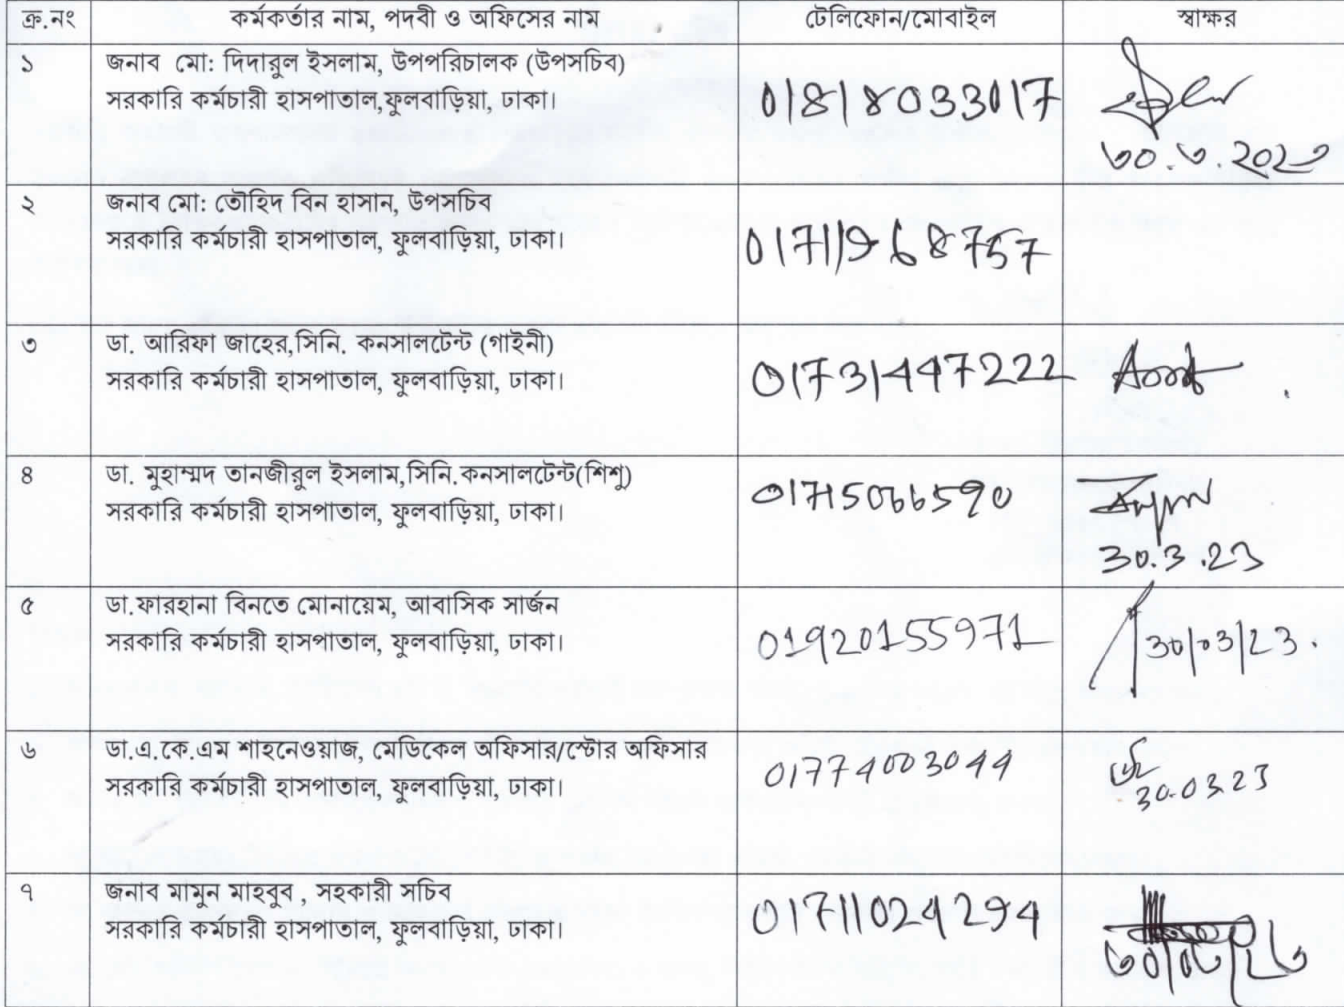 ক্র.নং কর্মকর্তার নাম, পদবী ও অফিসের নাম টেলিফোন/মোবাইল স্বাক্ষর
১ জনাব মো: দিদারুল ইসলাম, উপপরিচালক (উপসচিব)
সরকারি কর্মচারী হাসপাতাল,ফুলবাড়িয়া, ঢাকা।
01818033017
৩০.৩.2023
২ জনাব মো: তৌহিদ বিন হাসান, উপসচিব
সরকারি কর্মচারী হাসপাতাল, ফুলবাড়িয়া, ঢাকা।
01711968757
৩ ডা. আরিফা জাহের,সিনি. কনসালটেন্ট (গাইনী)
সরকারি কর্মচারী হাসপাতাল, ফুলবাড়িয়া, ঢাকা।
01731447222
৪ ডা. মুহাম্মদ তানজীরুল ইসলাম,সিনি.কনসালটেন্ট(শিশু)
সরকারি কর্মচারী হাসপাতাল, ফুলবাড়িয়া, ঢাকা।
01715066590
30.3.23
৫ ডা.ফারহানা বিনতে মোনায়েম, আবাসিক সার্জন
সরকারি কর্মচারী হাসপাতাল, ফুলবাড়িয়া, ঢাকা।
01920155971
30/03/23.
৬ ডা.এ.কে.এম শাহনেওয়াজ, মেডিকেল অফিসার/স্টোর অফিসার
সরকারি কর্মচারী হাসপাতাল, ফুলবাড়িয়া, ঢাকা।
01774003044
30.03.23
৭ জনাব মামুন মাহবুব , সহকারী সচিব
সরকারি কর্মচারী হাসপাতাল, ফুলবাড়িয়া, ঢাকা।
01711024294